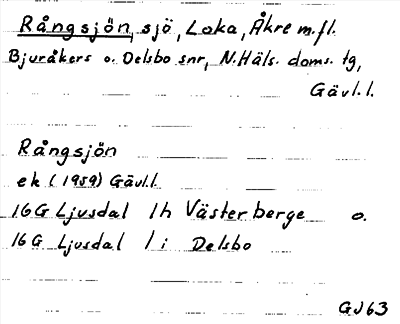 Rångsjön, sjö, Loka, Åkre m.fl.
Bjuråkers o. Delsbo snr, N.Häls. doms. tg,
Gävl.l.
Rångsjön
ek (1959) Gävl.l.
16G Ljusdal 1h Västerberge o.
16G Ljusdal 1i Delsbo
GJ63